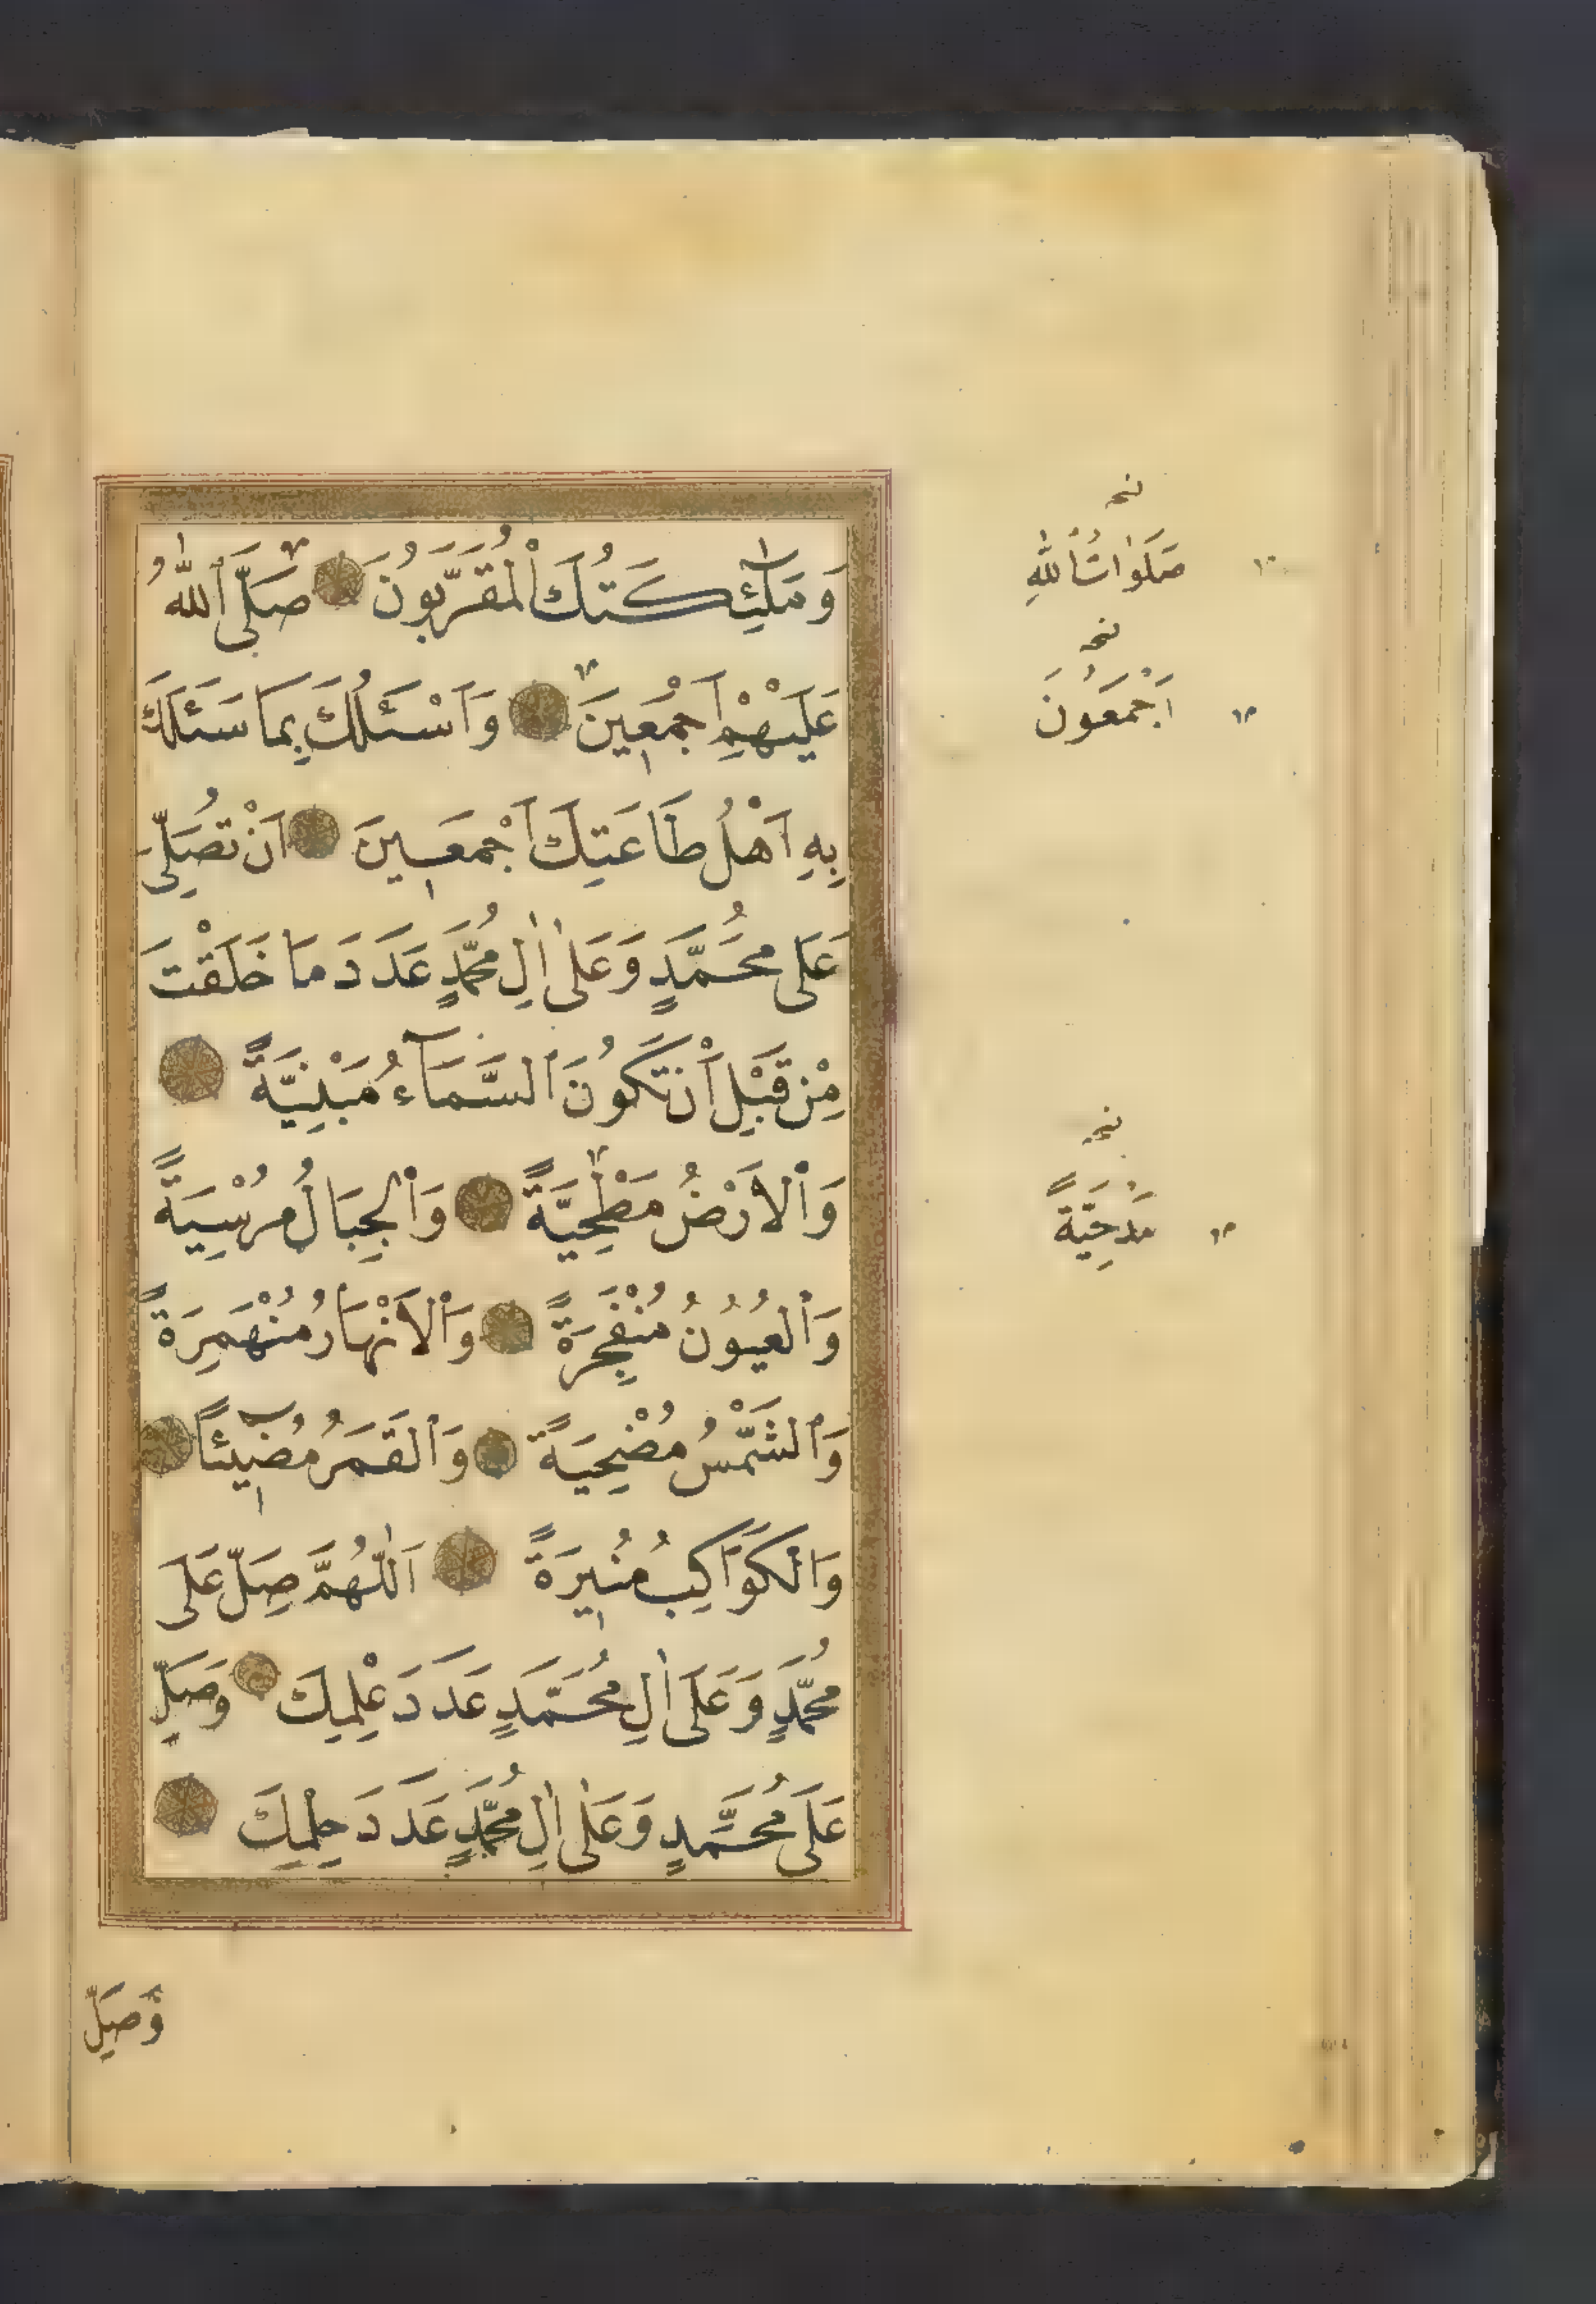 وَمَلٰٓئِكَتُكَ الْمُقَرَّبُونَ صَلَّى اللّٰهُ
عَلَيْهِمْ اَجْمَعِينَ وَاَسْـَٔلُكَ بِمَا سَـَٔلَكَ
بِهِ اَهْلُ طَاعَتِكَ اَجْمَعِينَ اَنْ تُصَلِّيَ
عَلَى مُحَمَّدٍ وَعَلٰى اٰلِ مُحَمَّدٍ عَدَدَ مَا خَلَقْتَ
مِنْ قَبْلِ اَنْ تَكُونَ السَّمَآءُ مَبْنِيَّةً
وَالْاَرْضُ مَطْحِيَّةً وَالْجِبَالُ مُرْسِيَةً
وَالْعُيُونُ مُنْفَجِرَةً وَالْاَنْهَارُ مُنْهَمِرَةً
وَالشَّمْسُ مُضْحِيَةً وَالْقَمَرُ مُضِٓيئًا
وَالْكَوَاكِبُ مُنِيرَةً اَللّٰهُمَّ صَلِّ عَلَى
مُحَمَّدٍ وَعَلَى اٰلِ مُحَمَّدٍ عَدَدَ عِلْمِكَ وَصَلِّ
عَلَى مُحَمَّدٍ وَعَلٰى اٰلِ مُحَمَّدٍ عَدَدَ حِلْمِكَ
وَصَلِّ
نخـ
صَلَوٰاتُ اللّٰهِ
نخـ
اَجْمَعُونَ
نخـ
مَدْحِيَّةً